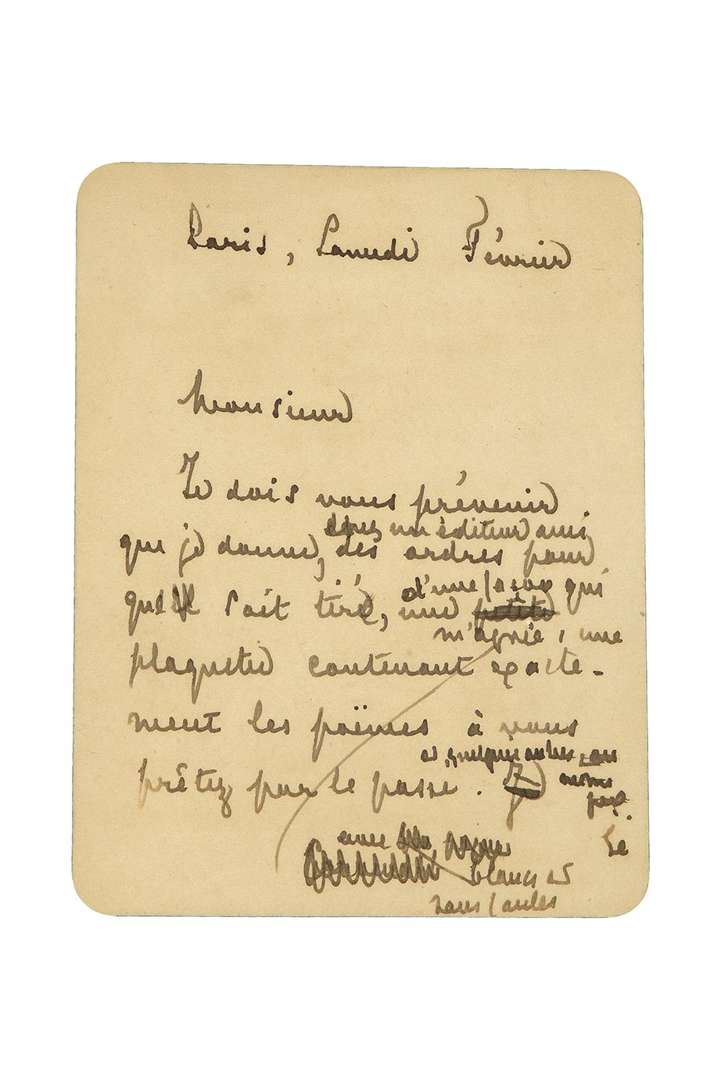 Paris, Samedi Février
Monsieur
Je dois vous prévenir
chez un éditeur ami,
que je donne, des ordres pour
d'une façon qui
qu'il soit tiré, une petite
m'agrée, une
plaquette contenant exacte-
ment les poëmes à vous
et quelques autres, au
prêtez par le passé. Je
même
Le
avec
blancs et
sans fautes